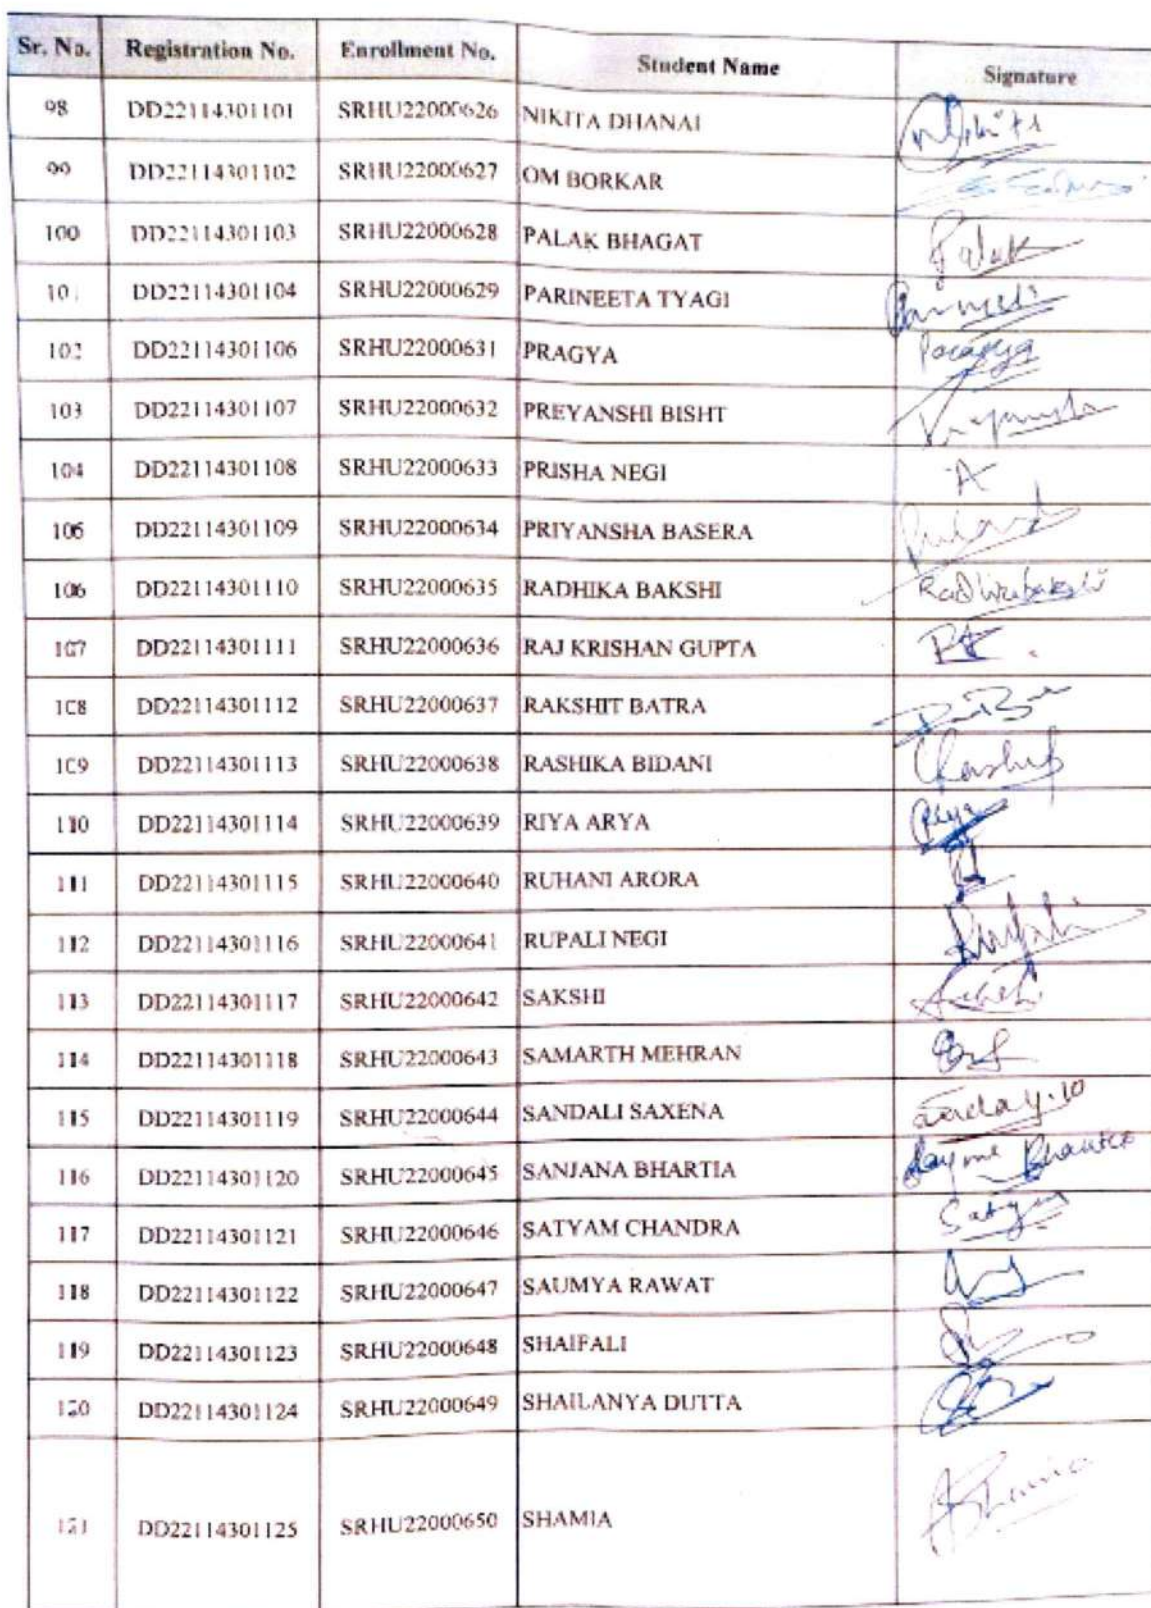 Sr. No. Registration No. Enrollment No. Student Name Signature
98 DD22114301101 SRHU22000626 NIKITA DHANAI Nikita
99 DD22114301102 SRHU22000627 OM BORKAR
100 DD22114301103 SRHU22000628 PALAK BHAGAT Palak
101 DD22114301104 SRHU22000629 PARINEETA TYAGI
102 DD22114301106 SRHU22000631 PRAGYA Pragya
103 DD22114301107 SRHU22000632 PREYANSHI BISHT
104 DD22114301108 SRHU22000633 PRISHA NEGI
105 DD22114301109 SRHU22000634 PRIYANSHA BASERA
106 DD22114301110 SRHU22000635 RADHIKA BAKSHI Radhikabakshi
107 DD22114301111 SRHU22000636 RAJ KRISHAN GUPTA
108 DD22114301112 SRHU22000637 RAKSHIT BATRA
109 DD22114301113 SRHU22000638 RASHIKA BIDANI
110 DD22114301114 SRHU22000639 RIYA ARYA Riya
111 DD22114301115 SRHU22000640 RUHANI ARORA
112 DD22114301116 SRHU22000641 RUPALI NEGI Rupali
113 DD22114301117 SRHU22000642 SAKSHI
114 DD22114301118 SRHU22000643 SAMARTH MEHRAN
115 DD22114301119 SRHU22000644 SANDALI SAXENA
116 DD22114301120 SRHU22000645 SANJANA BHARTIA
117 DD22114301121 SRHU22000646 SATYAM CHANDRA Satyam
118 DD22114301122 SRHU22000647 SAUMYA RAWAT
119 DD22114301123 SRHU22000648 SHAIFALI
120 DD22114301124 SRHU22000649 SHAILANYA DUTTA
121 DD22114301125 SRHU22000650 SHAMIA Shamia